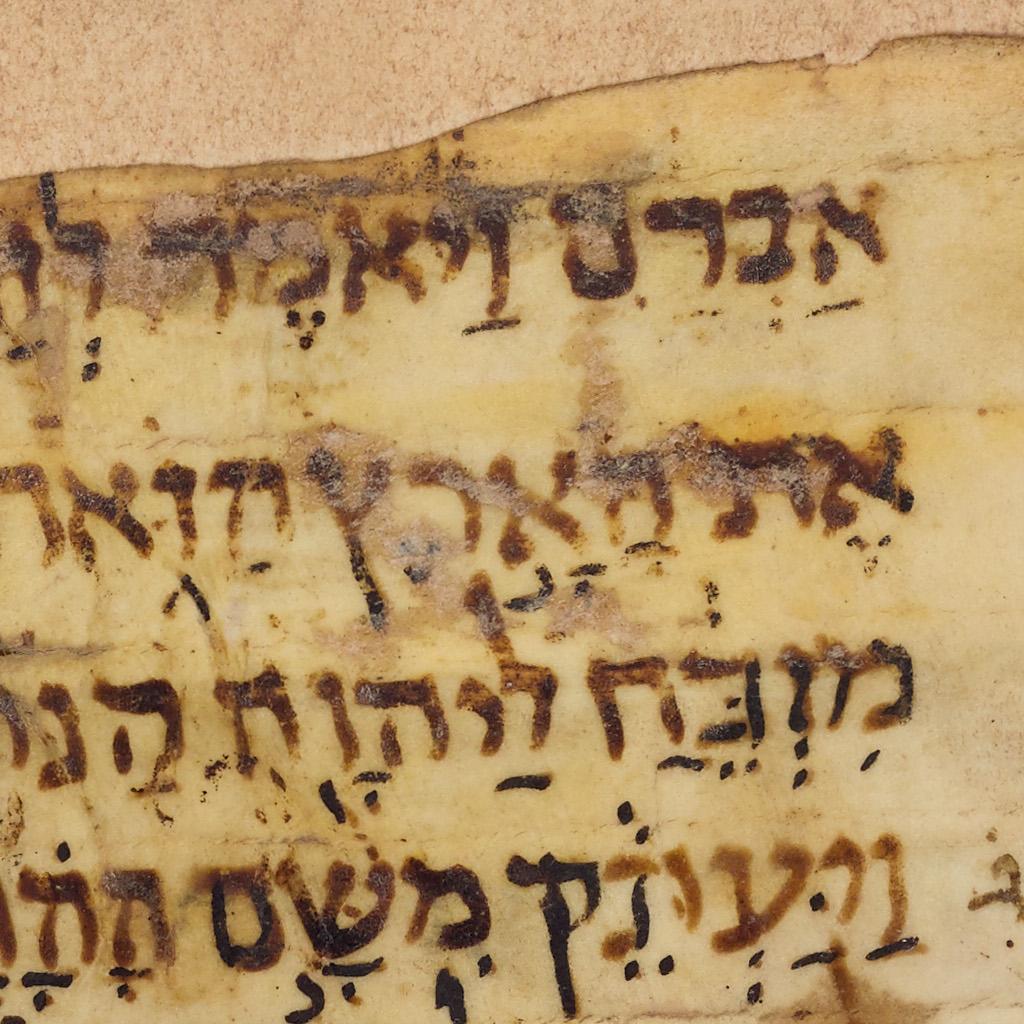 אַבְרָם וַיֹּאמֶר
אֶת הָאָרֶץ הַזֹּאת
מִזְבֵּחַ לַיהוָה
וַיַּעְתֵּק מִשָּׁם